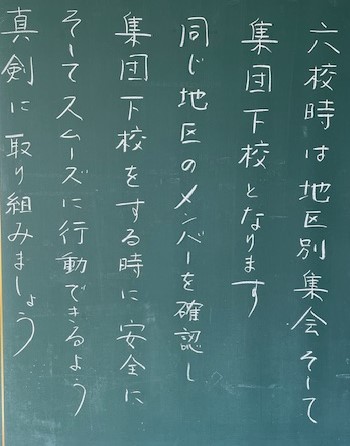 六校時は地区別集会そして
集団下校となります
同じ地区のメンバーを確認し
集団下校をする時に安全に
そしてスムーズに行動できるよう
真剣に取り組みましょう